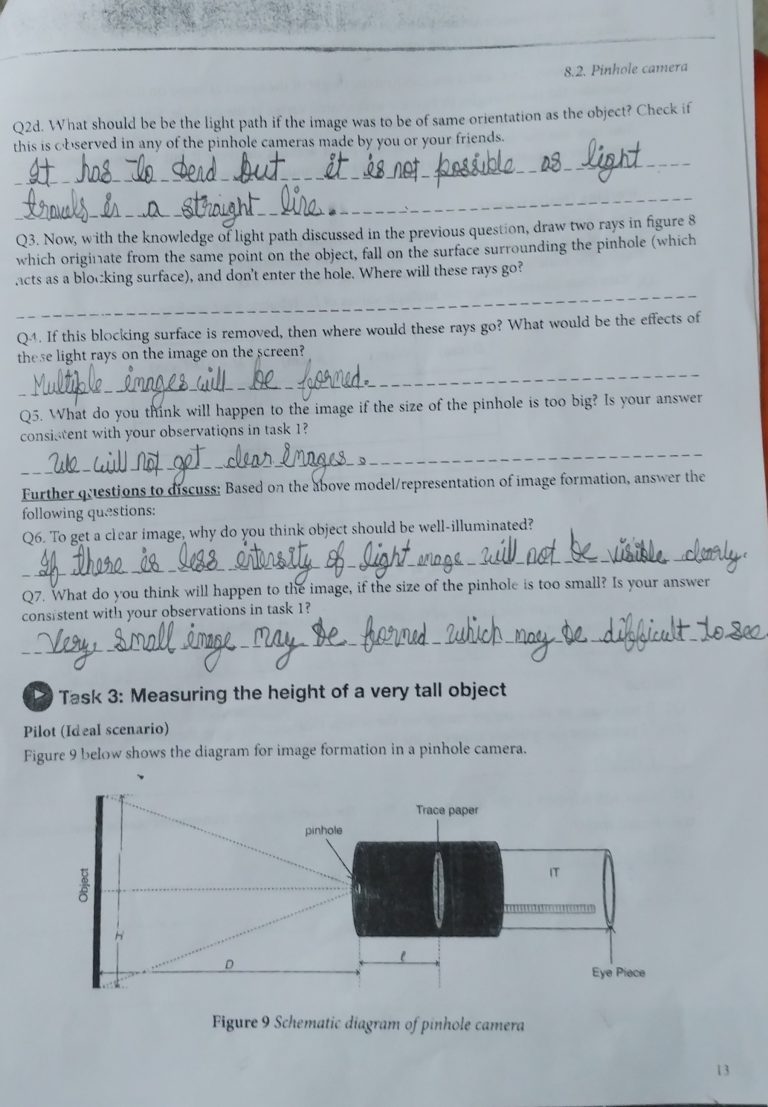 8.2. Pinhole camera
Q2d. What should be be the light path if the image was to be of same orientation as the object? Check if
this is observed in any of the pinhole cameras made by you or your friends.
It has to bend but it is not possible as light
travels in a straight line.
Q3. Now, with the knowledge of light path discussed in the previous question, draw two rays in figure 8
which originate from the same point on the object, fall on the surface surrounding the pinhole (which
acts as a blocking surface), and don't enter the hole. Where will these rays go?
Q4. If this blocking surface is removed, then where would these rays go? What would be the effects of
these light rays on the image on the screen?
Multiple images will be formed.
Q5. What do you think will happen to the image if the size of the pinhole is too big? Is your answer
consistent with your observations in task 1?
We will not get clear images.
Further questions to discuss: Based on the above model/representation of image formation, answer the
following questions:
Q6. To get a clear image, why do you think object should be well-illuminated?
If there is less intensity of light image will not be visible clearly.
Q7. What do you think will happen to the image, if the size of the pinhole is too small? Is your answer
consistent with your observations in task 1?
Very small image may be formed which may be difficult to see
Task 3: Measuring the height of a very tall object
Pilot (Ideal scenario)
Figure 9 below shows the diagram for image formation in a pinhole camera.
Trace paper
pinhole
IT
Object
H
D
ℓ
Eye Piece
Figure 9 Schematic diagram of pinhole camera
13